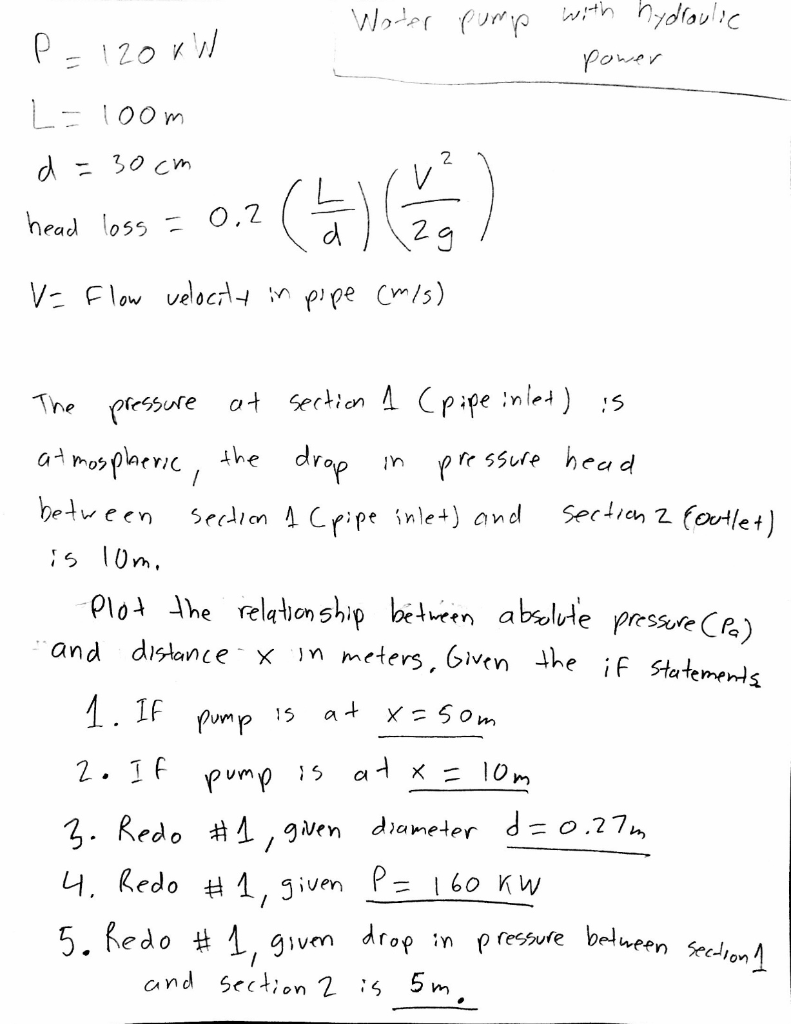 Water pump with hydraulic
power
P = 120 KW
L = 100m
d = 30 cm
head loss = 0.2 (L/d) (V²/2g)
V = Flow velocity in pipe (m/s)
The pressure at section 1 (pipe inlet) is
atmospheric, the drop in pressure head
between section 1 (pipe inlet) and section 2 (outlet)
is 10m.
Plot the relationship between absolute pressure (Pa)
and distance x in meters, Given the if statements
1. If pump is at x = 50m
2. If pump is at x = 10m
3. Redo #1, given diameter d = 0.27m
4. Redo #1, given P = 160 KW
5. Redo #1, given drop in pressure between section 1
and section 2 is 5m.